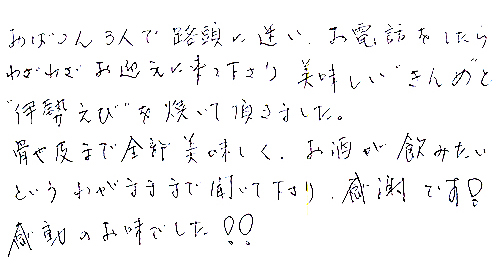 おばさん3人で路頭に迷い、お電話をしたら
わざわざお迎えに来て下さり 美味しい"きんめ"と
"伊勢えび"を焼いて頂きました。
骨や皮まで全部美味しく、お酒が飲みたい
というわがままも聞いて下さり、感謝です!
感動のお味でした!!